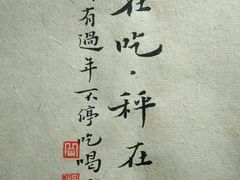 在吃，秤在
有過年不停吃喝